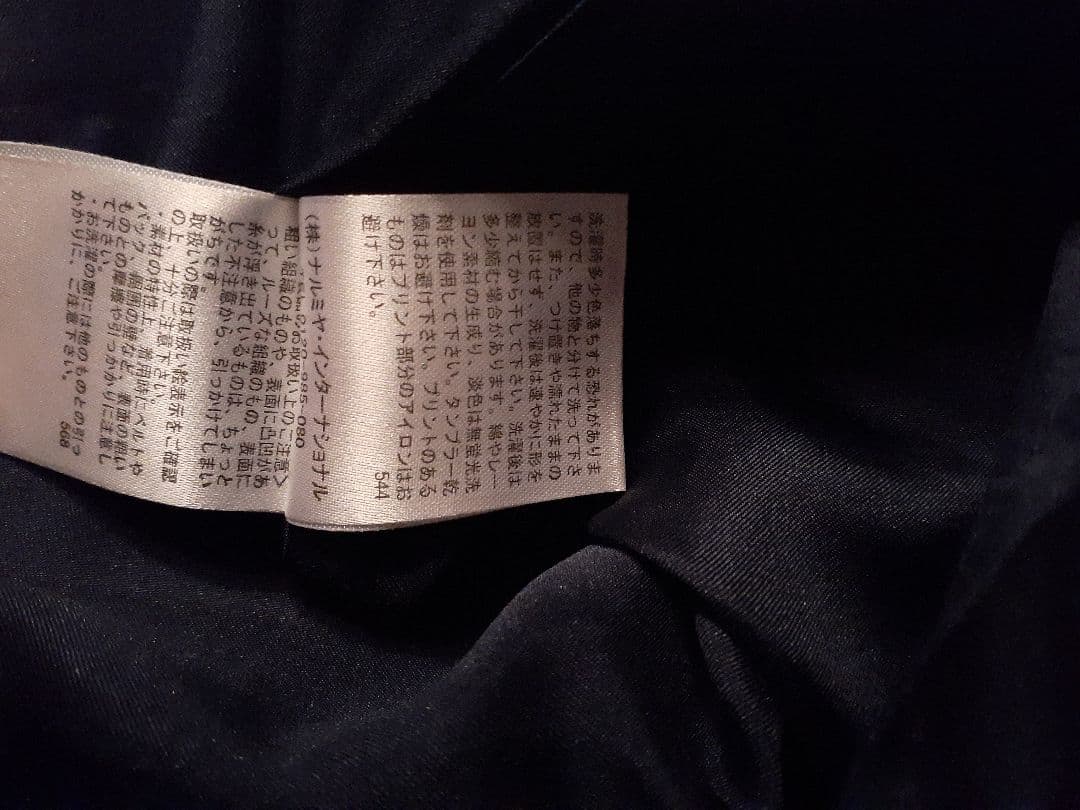 洗濯時多少色落ちする恐れがありま
すので、他の物と分けて洗って下さ
い。また、つけ置きや濡れたままの
放置はせず、洗濯後は速やかに形を
整えてから干して下さい。洗濯後は
多少縮む場合があります。綿やレー
ヨン素材の生成り、淡色は無蛍光洗
剤を使用して下さい。タンブラー乾
燥はお避け下さい。プリントのある
ものはプリント部分のアイロンはお
避け下さい。
544
(株)ナルミヤ・インターナショナル
985-080
取扱い上のご注意>
粗い組織のものや、表面に凸凹があ
って、ルーズな組織のもの、表面に
糸が浮き出ているものは、ちょっと
した不注意から、引っかけてしまい
がちです。
取扱いの際は取扱い絵表示をご確認
の上、十分ご注意下さい。
・素材の特性上、着用時にベルトや
バック、椅囲の縁など、表面の粗い
ものとの摩擦や引っかかりに注意し
て下さい。
・お洗濯の際には他のものとの引っ
かかりに、ご注意下さい。
568